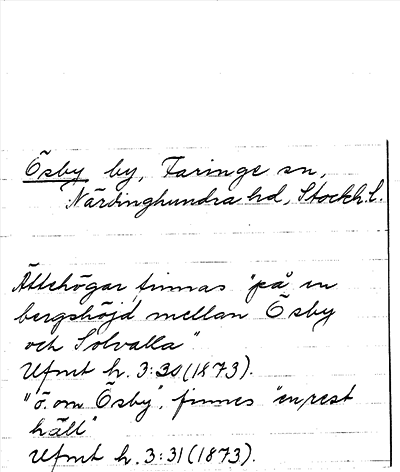 Ösby by, Faringe sn,
Närdinghundra hd, Stockh. l.
Ättehögar finnas "på en
bergshöjd mellan Ösby
och Solvalla".
Ufmt h. 3:30 (1873).
"ö. om Ösby", finnes "en rest
häll"
Ufmt h. 3:31 (1873).